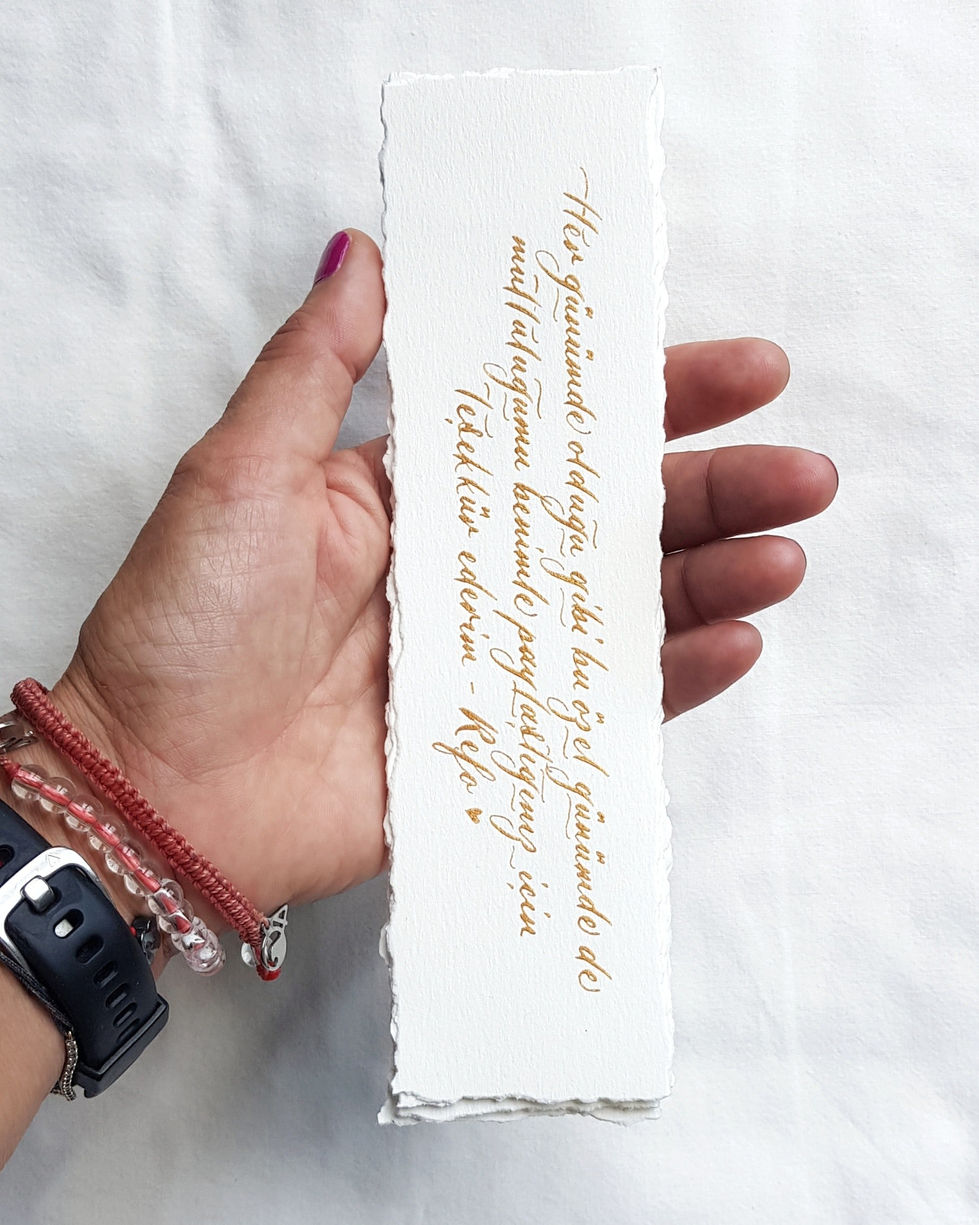 Her günümde olduğu gibi bu özel günümde de
mutluluğumu benimle paylaştığınız için
Teşekkür ederim - Refo ♥